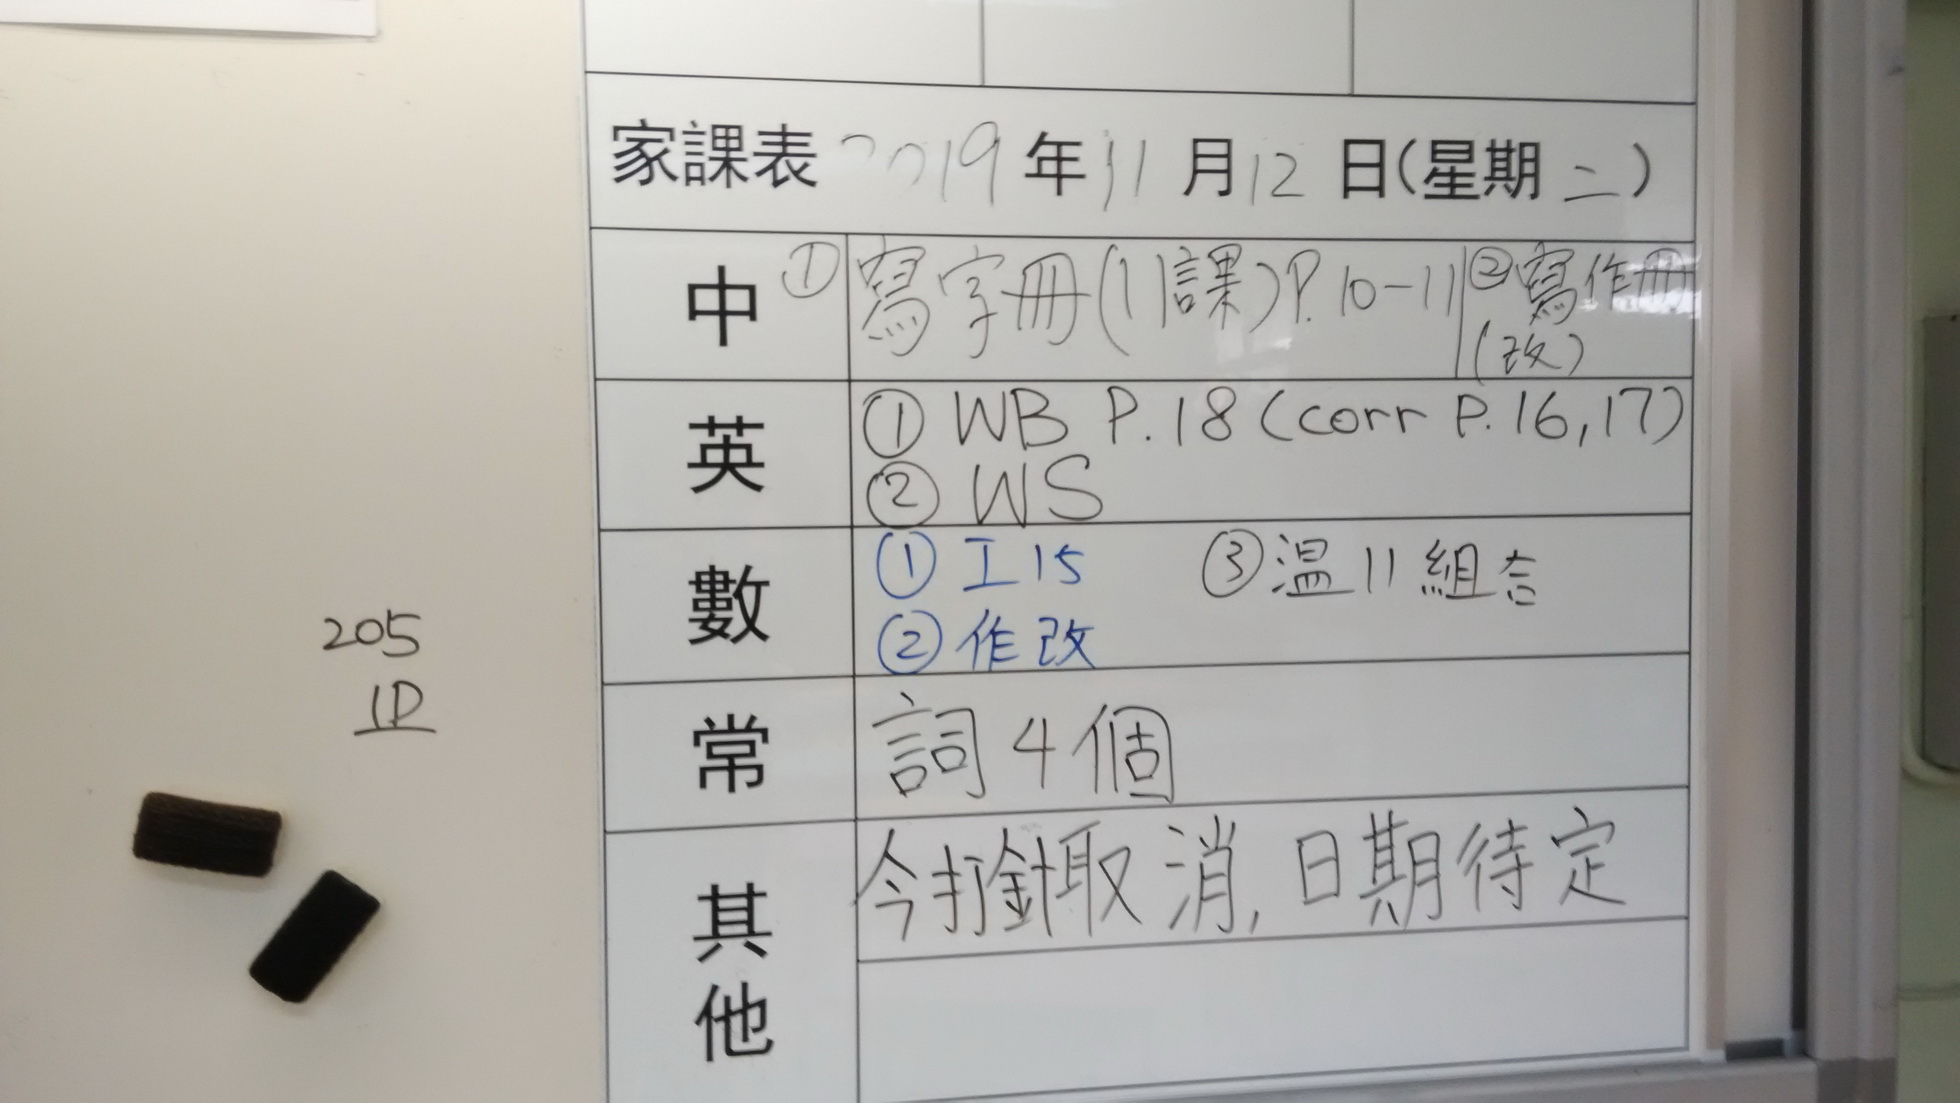 家課表 2019年11月12日(星期二)
中 ① 寫字冊(11課)P.10-11 ② 寫作冊
(改)
英 ① WB P.18 (corr P.16,17)
② WS
數 ① 工15 ③ 温11組合
② 作改
常 詞4個
其他 今打針取消,日期待定
205
1D